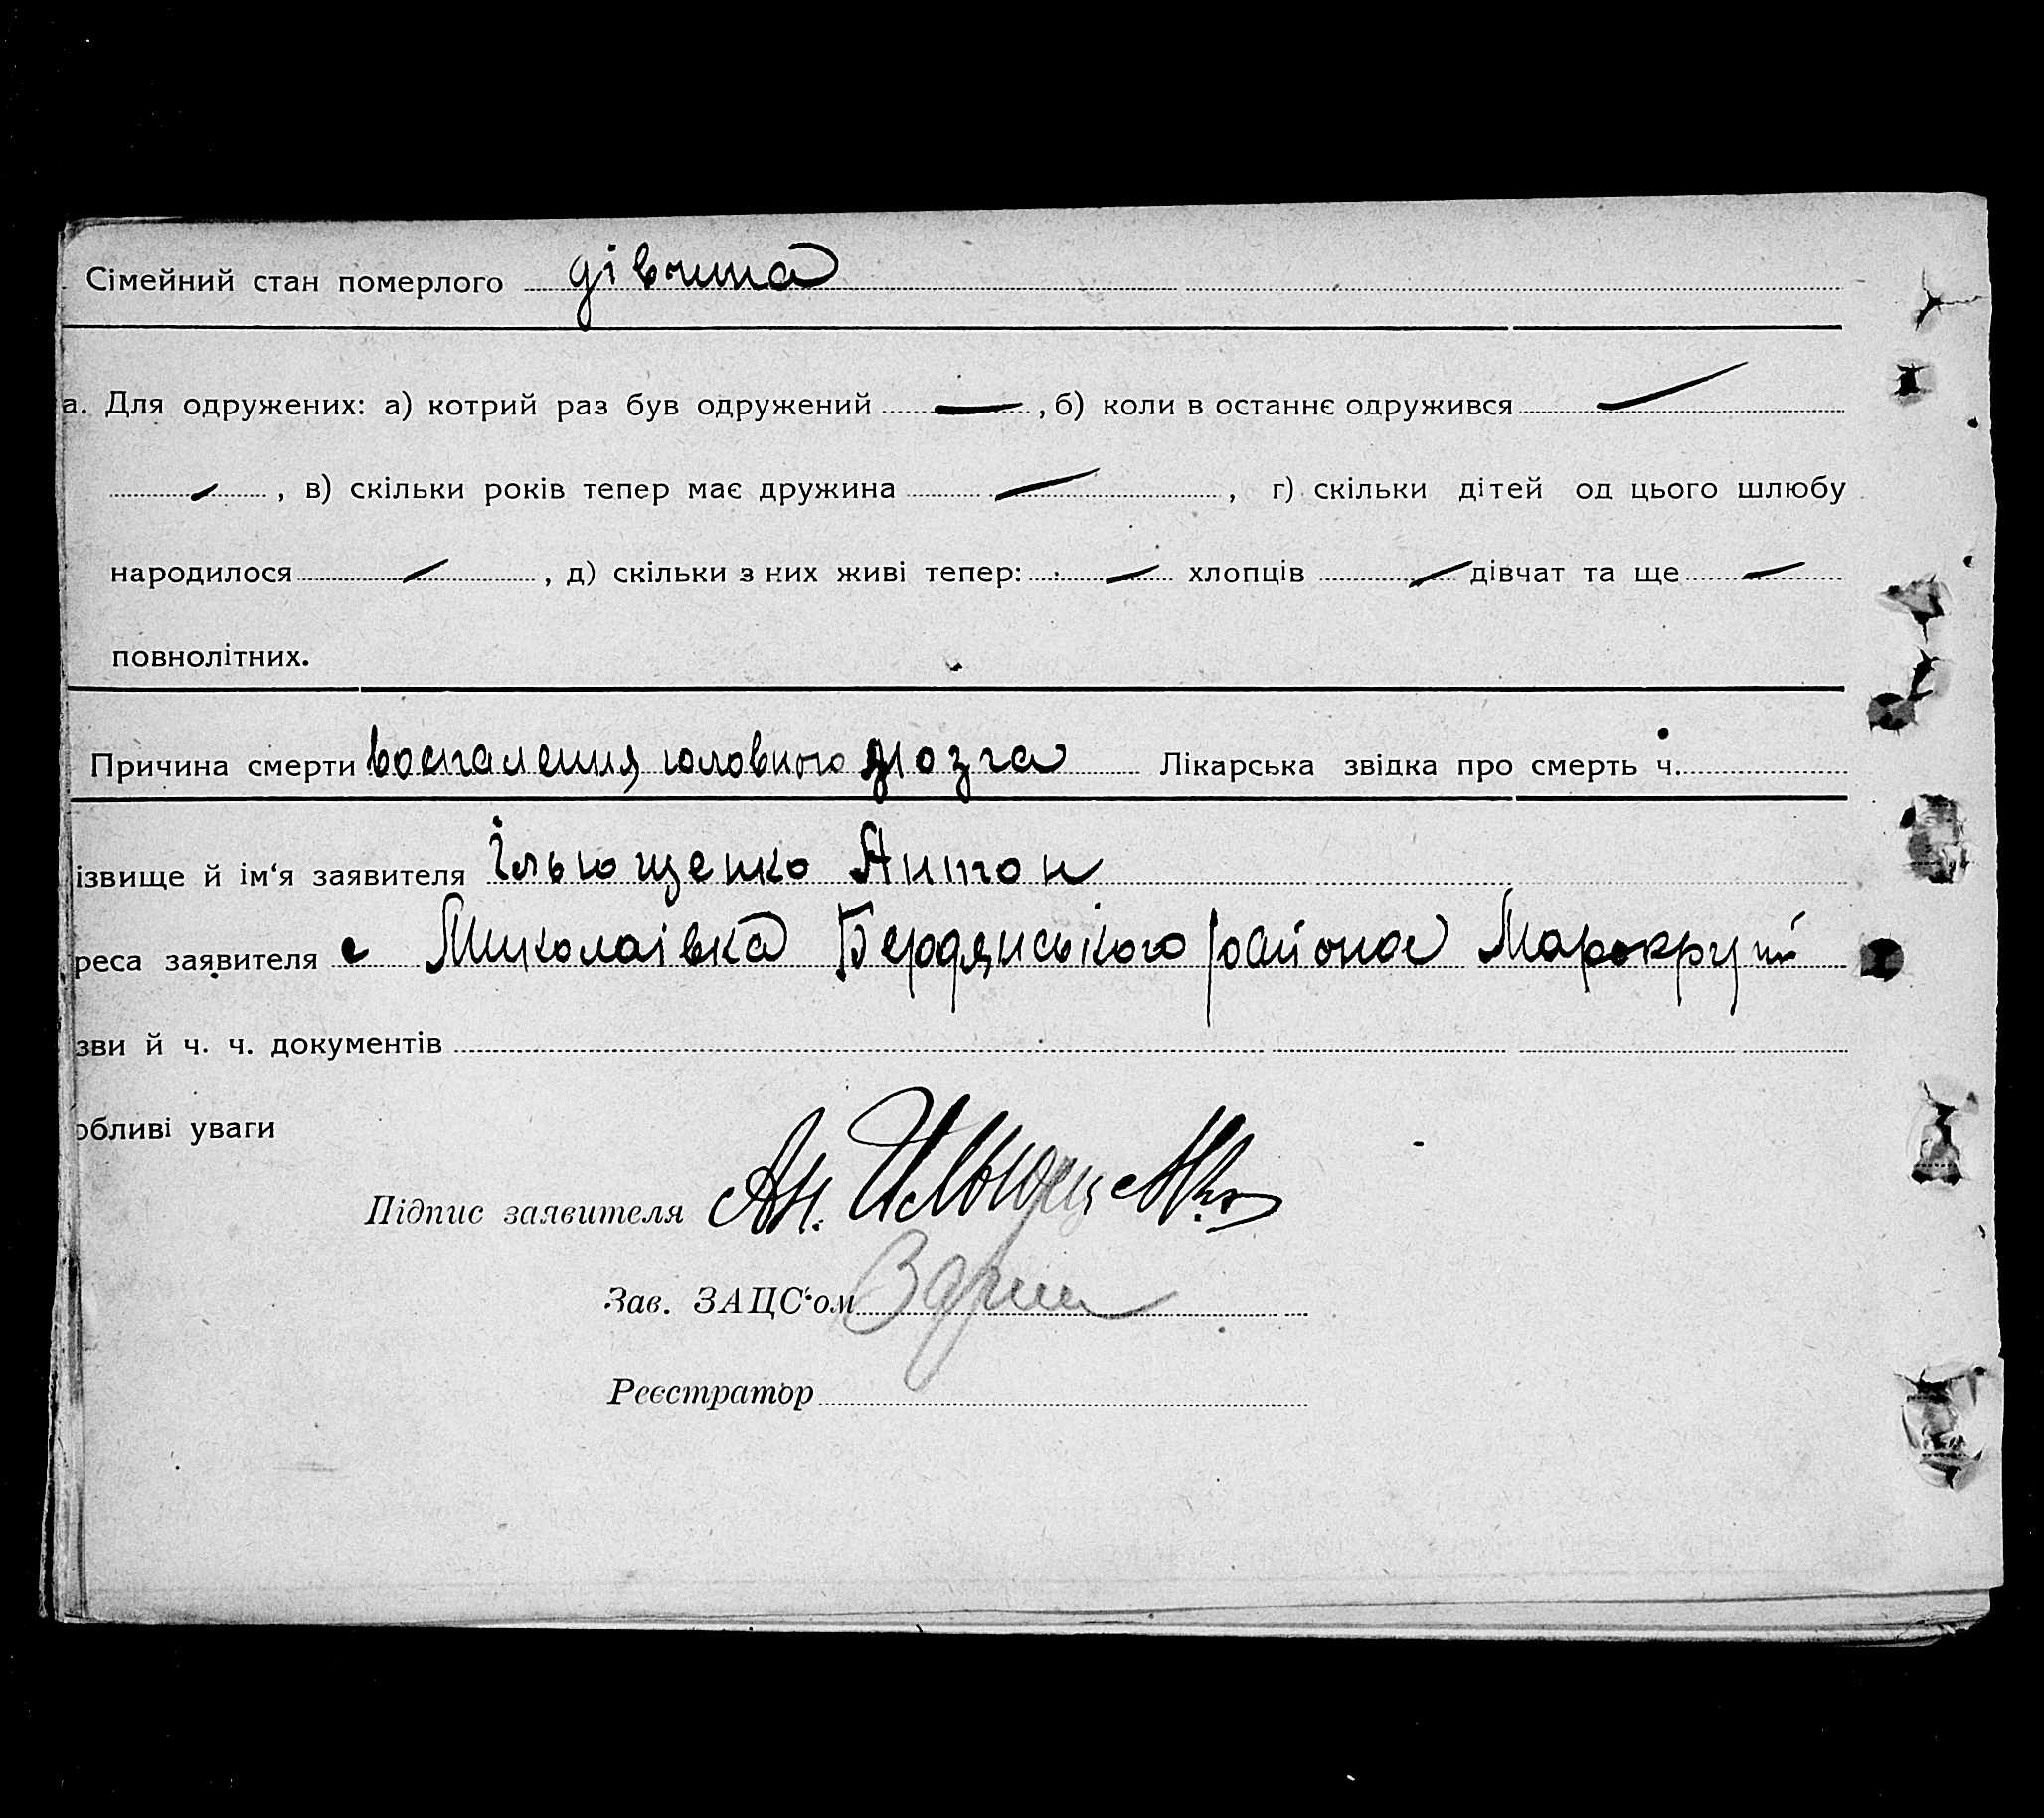 Сімейний стан померлого дівчина
а. Для одружених: а) котрий раз був одружений —, б) коли в останнє одружився —
—, в) скільки років тепер має дружина —, г) скільки дітей од цього шлюбу
народилося —, д) скільки з них живі тепер: — хлопців — дівчат та ще —
повнолітних.
Причина смерти воспаления головного мозга Лікарська звідка про смерть ч.
ізвище й ім‘я заявителя Ільющенко Антон
реса заявителя с Миколаівка Бердянського района Марокруги
зви й ч. ч. документів
обливі уваги
Підпис заявителя Ан. Ильющенко
Зав. ЗАЦС‘ом
Реєстратор